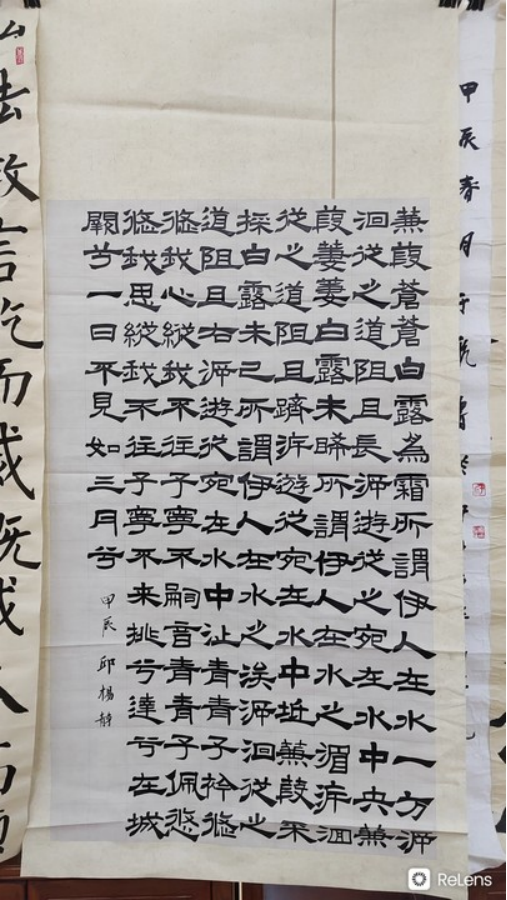 蒹葭蒼蒼白露為霜所謂伊人在水一方溯
洄從之道阻且長溯遊從之宛在水中央蒹
葭萋萋白露未晞所謂伊人在水之湄泝洄
從之道阻且躋泝遊從宛在水中坻蒹葭采
採白露未已所謂伊人在水之涘溯洄從之
道阻且右溯遊從宛在水中沚青青子衿悠
悠我心縱我不往子寧不嗣音青青子佩悠
悠我思縱我不往子寧不来挑兮達兮在城
闕兮一日不見如三月兮
甲辰 邱楊静
甲辰春月于
言訖而感既
ReLens